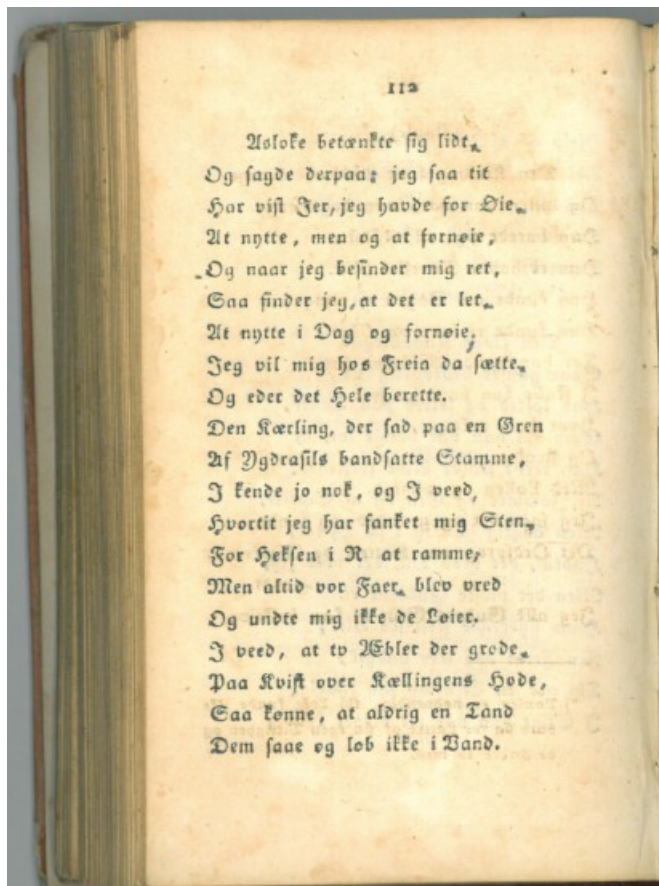 112
Asloke betænkte sig lidt,
Og sagde derpaa: jeg saa tit
Har vist Jer, jeg havde for Øie,
At nytte, men og at fornøie,
Og naar jeg besinder mig ret,
Saa finder jeg, at det er let,
At nytte i Dag og fornøie,
Jeg vil mig hos Freia da sætte,
Og eder det Hele berette.
Den Kærling, der sad paa en Gren
Af Ygdrasils bandsatte Stamme,
I kende jo nok, og I veed,
Hvortit jeg har sanket mig Sten,
For Heksen i R at ramme,
Men altid vor Faer, blev vred
Og undte mig ikke de Løier.
I veed, at to Æbler der grode,
Paa Kvist over Kællingens Hode,
Saa kønne, at aldrig en Tand
Dem saae og løb ikke i Vand.